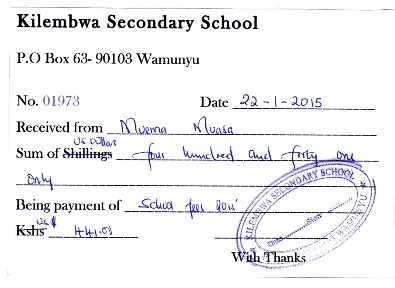 Kilembwa Secondary School
P.O Box 63- 90103 Wamunyu
No. 01973 Date 22-1-2015
Received from Muema Muasa
US Dollars
Sum of Shillings four hundred and forty one
only
Being payment of School fees 2015
US$
Kshs 441.00
KILEMBWA SECONDARY SCHOOL
WAMUNYU
With Thanks